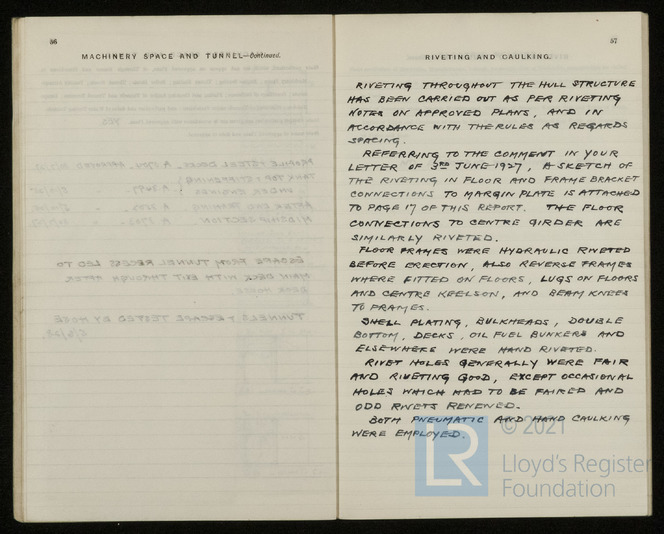 56
MACHINERY SPACE AND TUNNEL—Continued.
57
RIVETING AND CAULKING.
RIVETING THROUGHOUT THE HULL STRUCTURE
HAS BEEN CARRIED OUT AS PER RIVETING
NOTES ON APPROVED PLANS, AND IN
ACCORDANCE WITH THE RULES AS REGARDS
SPACING.
REFERRING TO THE COMMENT IN YOUR
LETTER OF 3RD JUNE 1927, A SKETCH OF
THE RIVETING IN FLOOR AND FRAME BRACKET
CONNECTIONS TO MARGIN PLATE IS ATTACHED
TO PAGE 17 OF THIS REPORT. THE FLOOR
CONNECTIONS TO CENTRE GIRDER ARE
SIMILARLY RIVETED.
FLOOR FRAMES WERE HYDRAULIC RIVETED
BEFORE ERECTION, ALSO REVERSE FRAMES
WHERE FITTED ON FLOORS, LUGS ON FLOORS
AND CENTRE KEELSON, AND BEAM KNEES
TO FRAMES.
SHELL PLATING, BULKHEADS, DOUBLE
BOTTOM, DECKS, OIL FUEL BUNKERS AND
ELSEWHERE WERE HAND RIVETED.
RIVET HOLES GENERALLY WERE FAIR
AND RIVETING GOOD, EXCEPT OCCASIONAL
HOLES WHICH HAD TO BE FAIRED AND
ODD RIVETS RENEWED.
BOTH PNEUMATIC AND HAND CAULKING
WERE EMPLOYED.
© 2021
LR
Lloyd's Register
Foundation